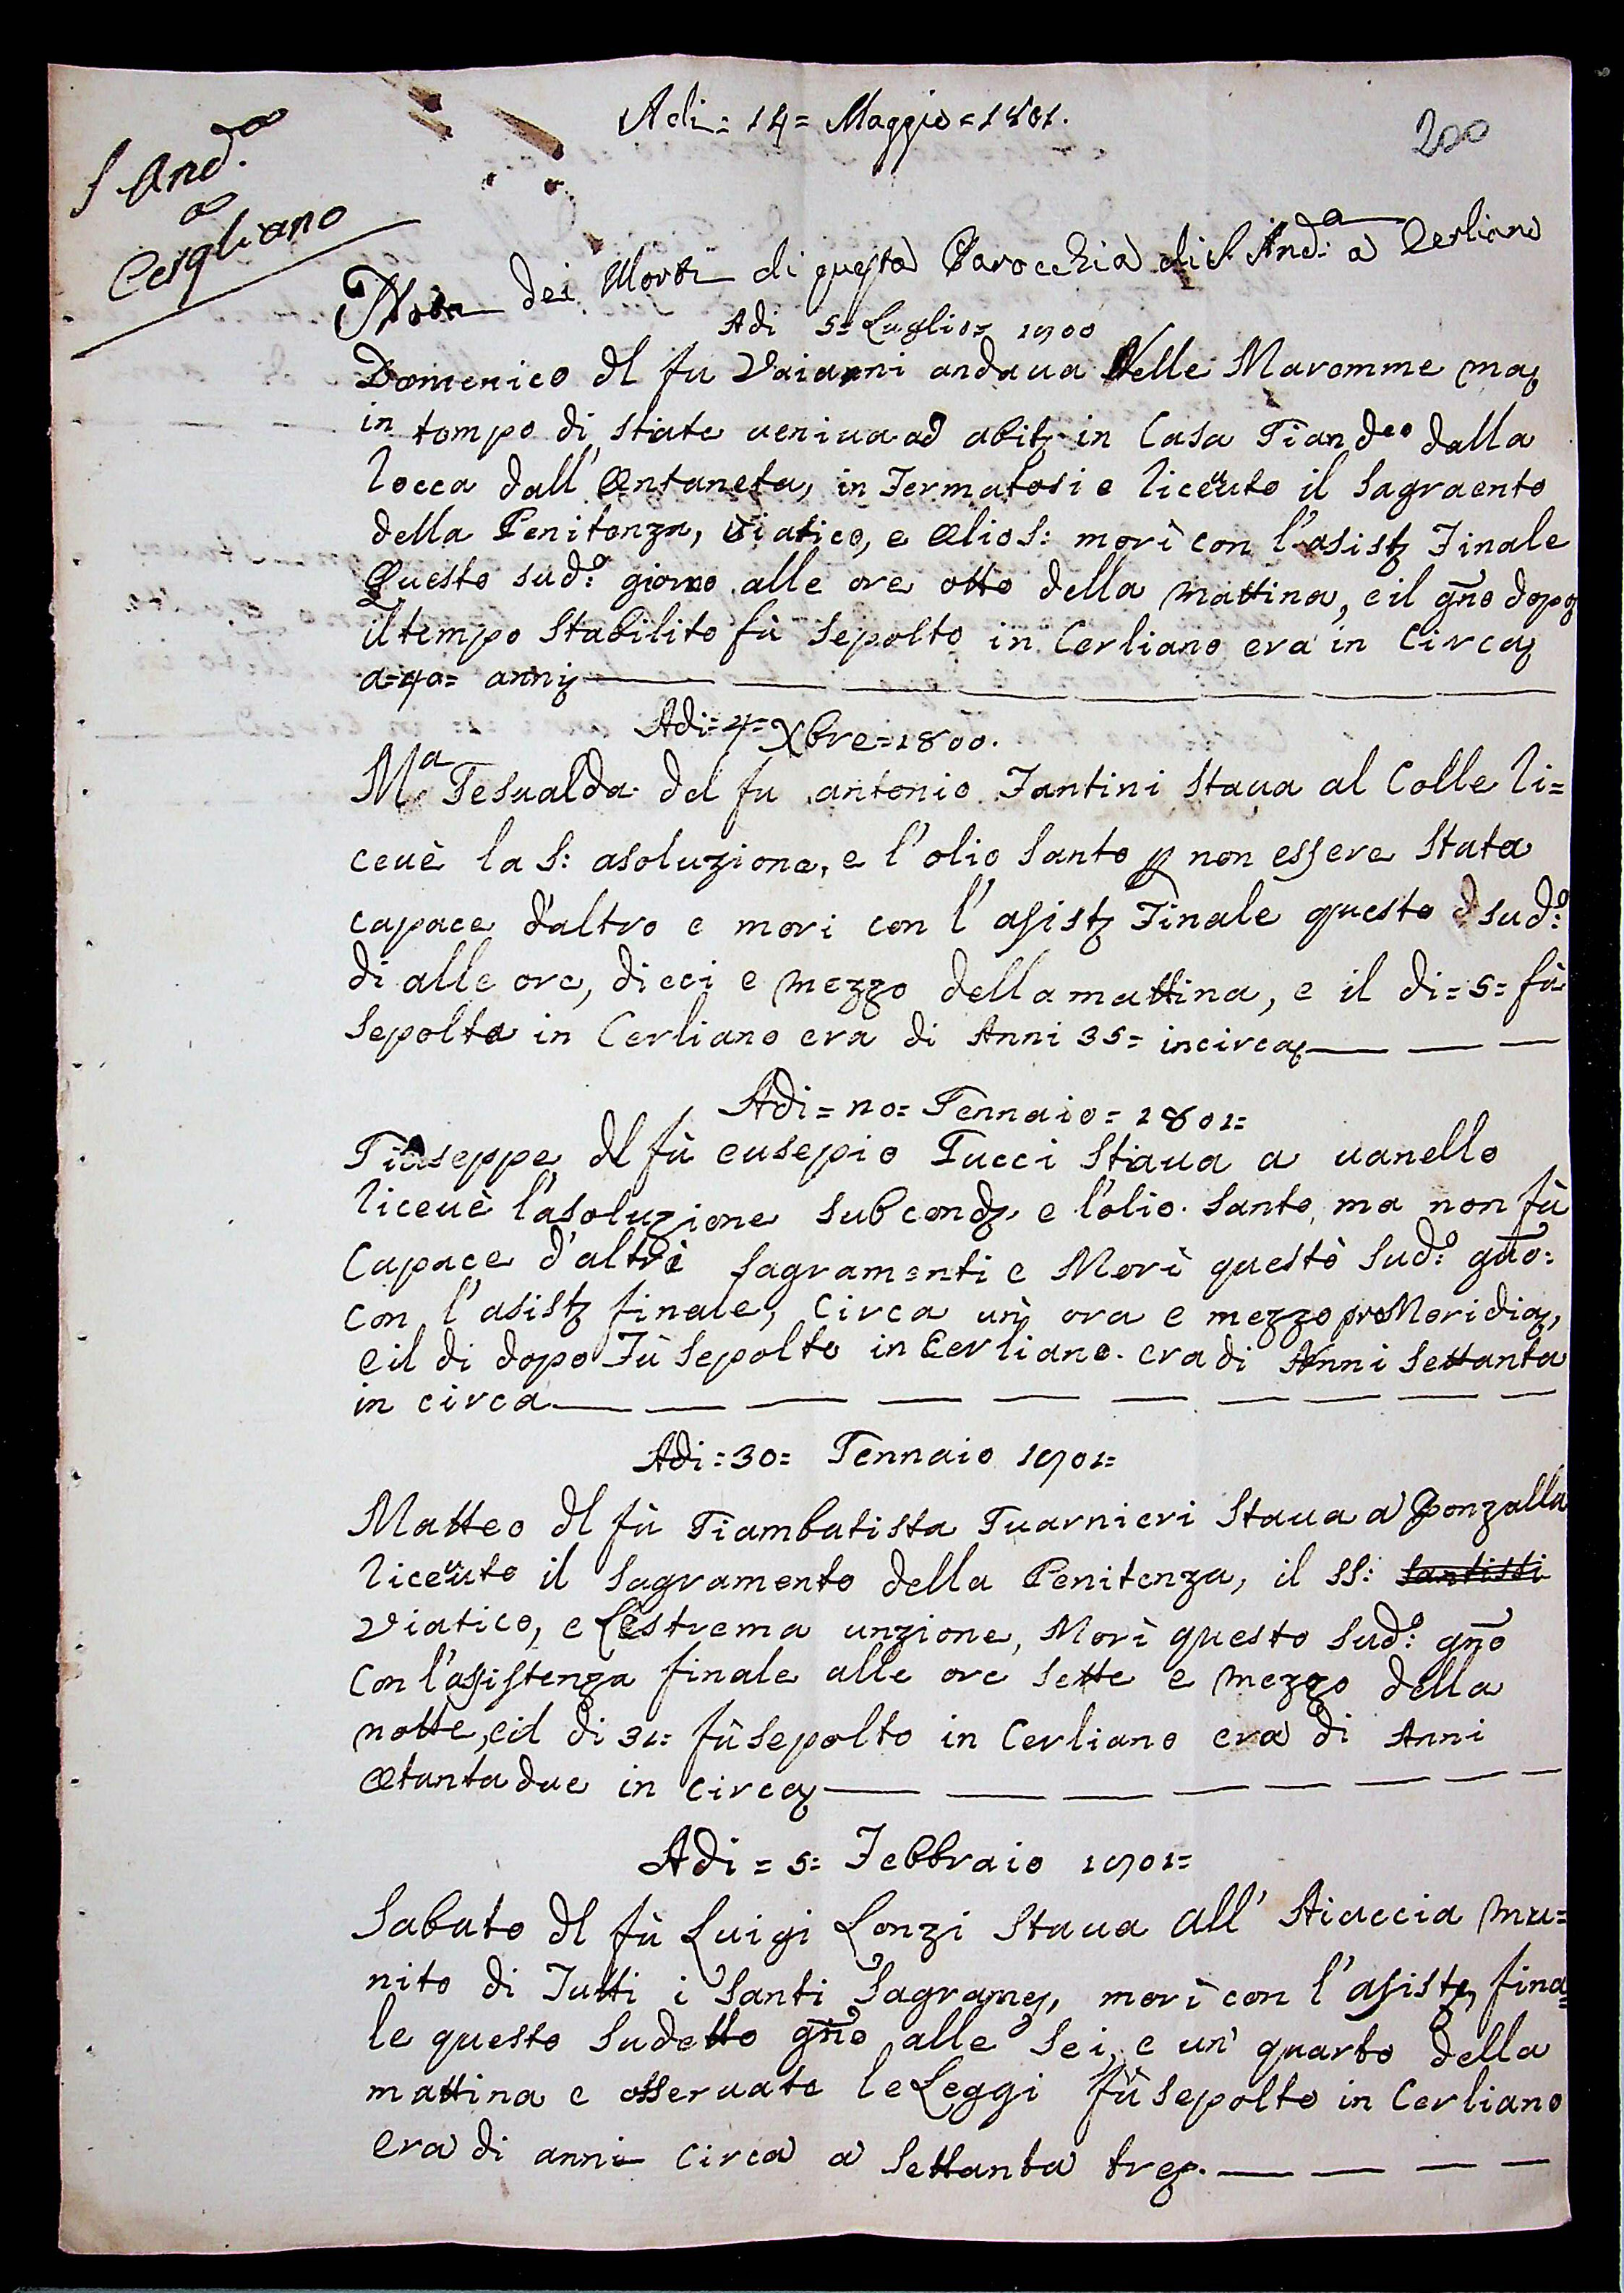 Adi = 14 = Maggio = 1801.
200
S And.a
a
Cerliano
Nota dei Morti di questa Parocchia di S. And.a a Cerliano
Adi 5 = Luglio = 1800
Domenico dl fu Vaianni andaua Nelle Maremme ma
in tempo di state ueniua ad abit. in Casa Giand.eo dalla
Rocca dall' Ontaneta, in Fermatosi e Riceuuto il Sagraento
della Penitenza, Viatico, e Olio S: morì con l'asist. Finale
Questo sud.o giorno alle ore otto della mattina, e il gño dopo
il tempo Stabilito fù Sepolto in Cerliano era in Circa
a = 40 = anni
Adi = 4 = Xbre = 1800.
M.a Gesualda del fu antonio Fantini Staua al Colle Ri=
ceuè la S: asoluzione, e l'olio Santo p non essere Stata
capace d'altro e mori con l'asist. Finale questo sud.o
di alle ore, dieci e mezzo della mattina, e il di = 5 = fù
Sepolta in Cerliano era di Anni 35 = incirca
Adi = 10 = Gennaio = 1801 =
Giuseppe dl fù eusepio Tucci Staua a uanello
Riceuè l'asoluzione sub cond. e l'olio Santo, ma non fù
Capace d'altri Sagramenti e Morì questo sud.o gño:
con l'asist. finale, Circa un' ora e mezzo pro Meridia,
e il di dopo Fù Sepolto in Cerliano. era di Anni Settanta
in circa
Adi = 30 = Gennaio 1801 =
Matteo dl fù Giambatista Guarnieri Staua a Ponzalla
Riceuuto il Sagramento della Penitenza, il SS: Santissi
Viatico, e l'estrema unzione, Morì questo Sud.o gño
Con l'assistenza finale alle ore Sette e mezzo della
notte, e il di 31 = fù Sepolto in Cerliano era di Anni
Otanta due in Circa
Adi = 5 = Febbraio 1801 =
Sabato dl fù Luigi Lonzi Staua all' Stiaccia mu=
nito di Tutti i Santi Sagram., morì con l'asist. fina=
le questo Sudetto gño alle Sei, e un' quarto della
mattina e osseruate le Leggi fù Sepolto in Cerliano
era di anni Circa a Settanta tre.